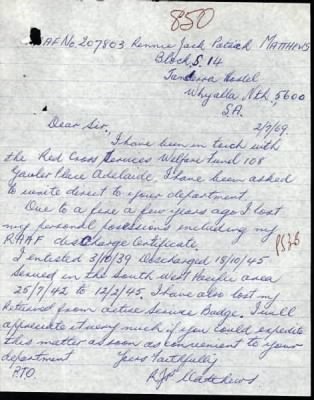 850
RAAF No 207803 Rennie Jack Patrick MATTHEWS
Block S. 14
Tanderra Hostel
Whyalla Nth, 5600
S.A.
2/7/69.
Dear Sir,
I have been in touch with
the Red Cross Services Welfare Fund 108
Gawler Place Adelaide. I have been asked
to write direct to your department.
Due to a fire a few years ago I lost
my personal possesions including my
RAAF discharge certificate.
I enlisted 3/10/39 Discharged 18/10/45
Served in the South West Pacific area
25/7/42 to 12/2/45. I have also lost my
Returned from active Service Badge. I will
appreciate it very much if you could expedite
this matter as soon as convenient to your
department Yours Faithfully
P.T.O. RJP Matthews